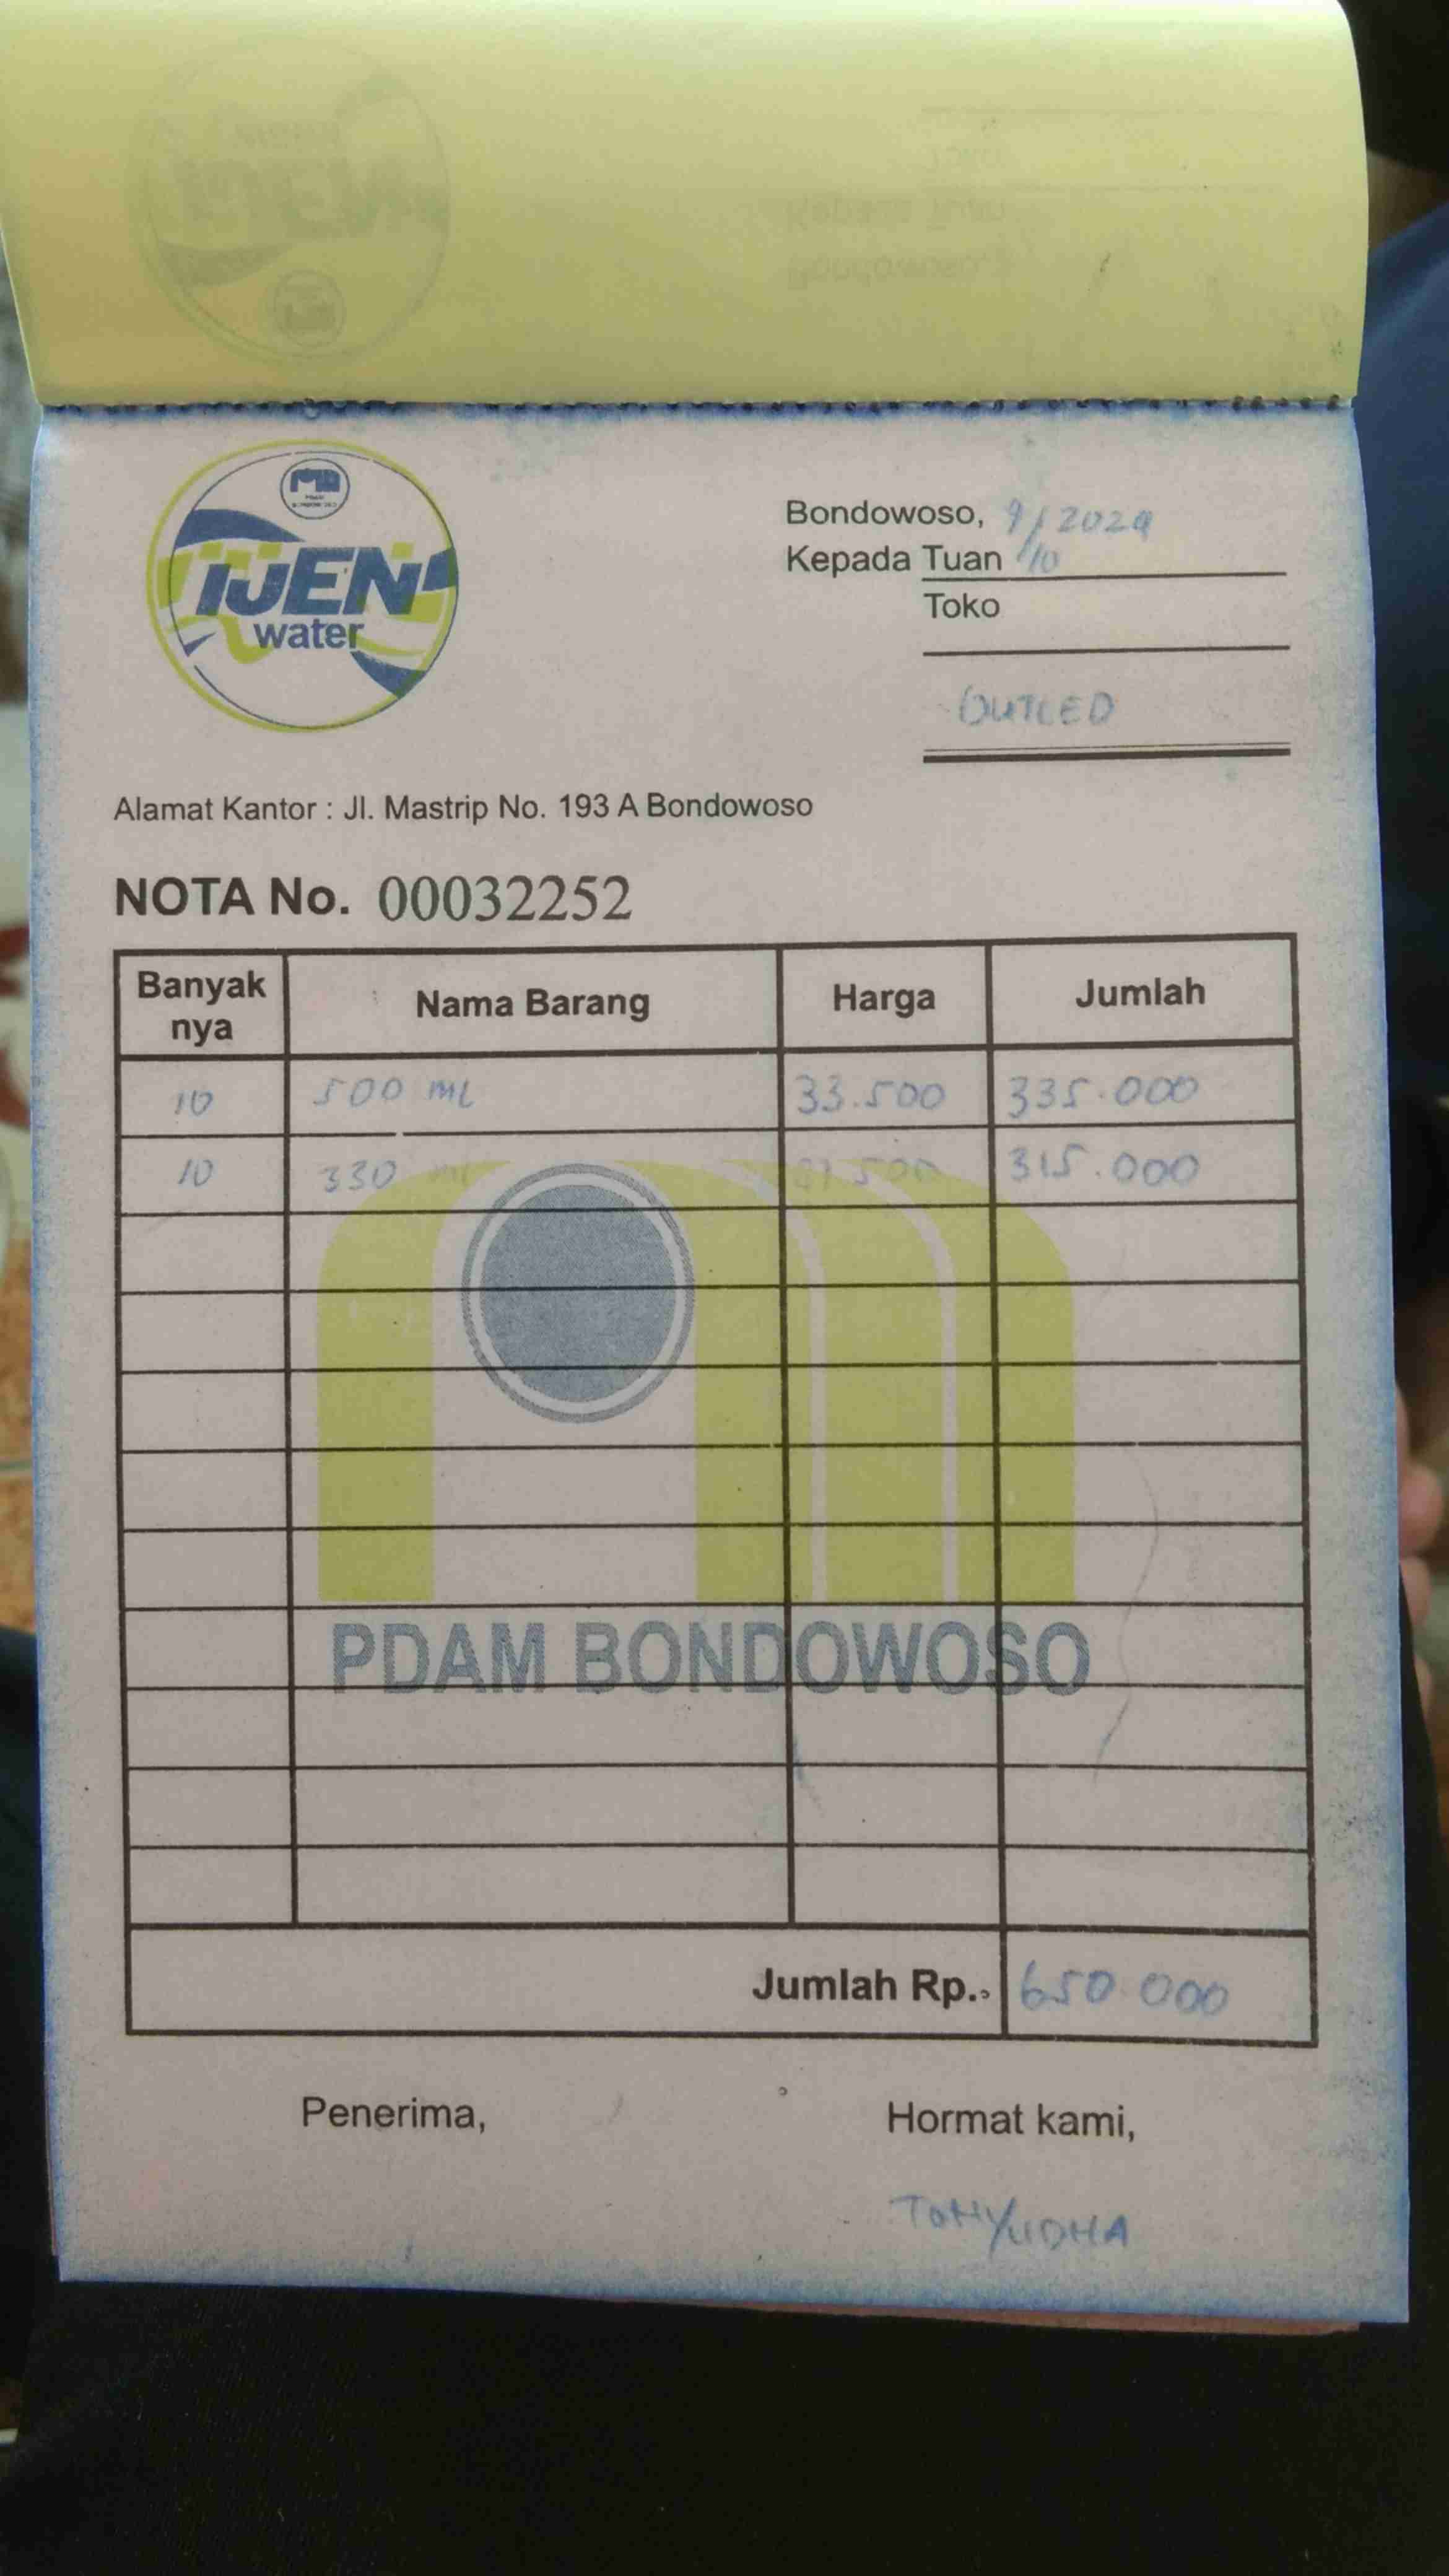 IJEN
water
Bondowoso, 9/10 2024
Kepada Tuan
Toko
OUTLED
Alamat Kantor : Jl. Mastrip No. 193 A Bondowoso
NOTA No. 00032252
Banyak nya Nama Barang Harga Jumlah
10 500 ML 33.500 335.000
10 330 ml 31 500 315.000
PDAM BONDOWOSO
Jumlah Rp. 650 000
Penerima, Hormat kami,